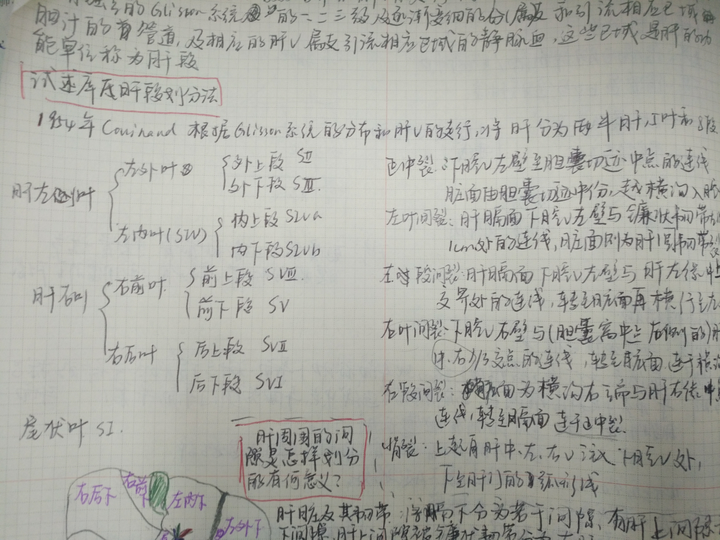 的Glisson系统的一、二三级及
胆汁的管道,及相应的肝V属支引流相应区域的静脉血,这些区域是肝的功
能单位称为肝段
试述库氏肝段划分法
1954年Couinaud 根据Glisson系统的分布和肝V的走行,将肝分为两半肝,5叶和8段
肝左叶
左外叶
外上段 SII
外下段 SIII
左内叶(SIV)
内上段SIVa
内下段SIVb
肝右叶
右前叶
前上段 SVIII
前下段 SV
右后叶
后上段 SVII
后下段 SVI
尾状叶 SI.
正中裂:下腔V左壁至胆囊切迹中点的连线
脏面由胆囊切迹中份,
左叶间裂:肝膈面下腔V左壁与镰状韧带
1cm处的连线,脏面则为肝圆韧带
左段间裂:肝膈面下腔V左壁与肝左缘中
交界处的连线,转至脏面再横行至左
右叶间裂:下腔V右壁与(胆囊
中、右1/3交点的连线,转至脏面,连于横沟
右段间裂:脏面为横沟右端与肝右缘中
连线,转至膈面连于正中裂
背裂:上起自肝中、左、右V注入下腔V处,
下至肝门的弧形线
肝周围的间
隙是怎样划分
的有何意义?
右后下
右前
左内下
左外下
肝脏及其韧带